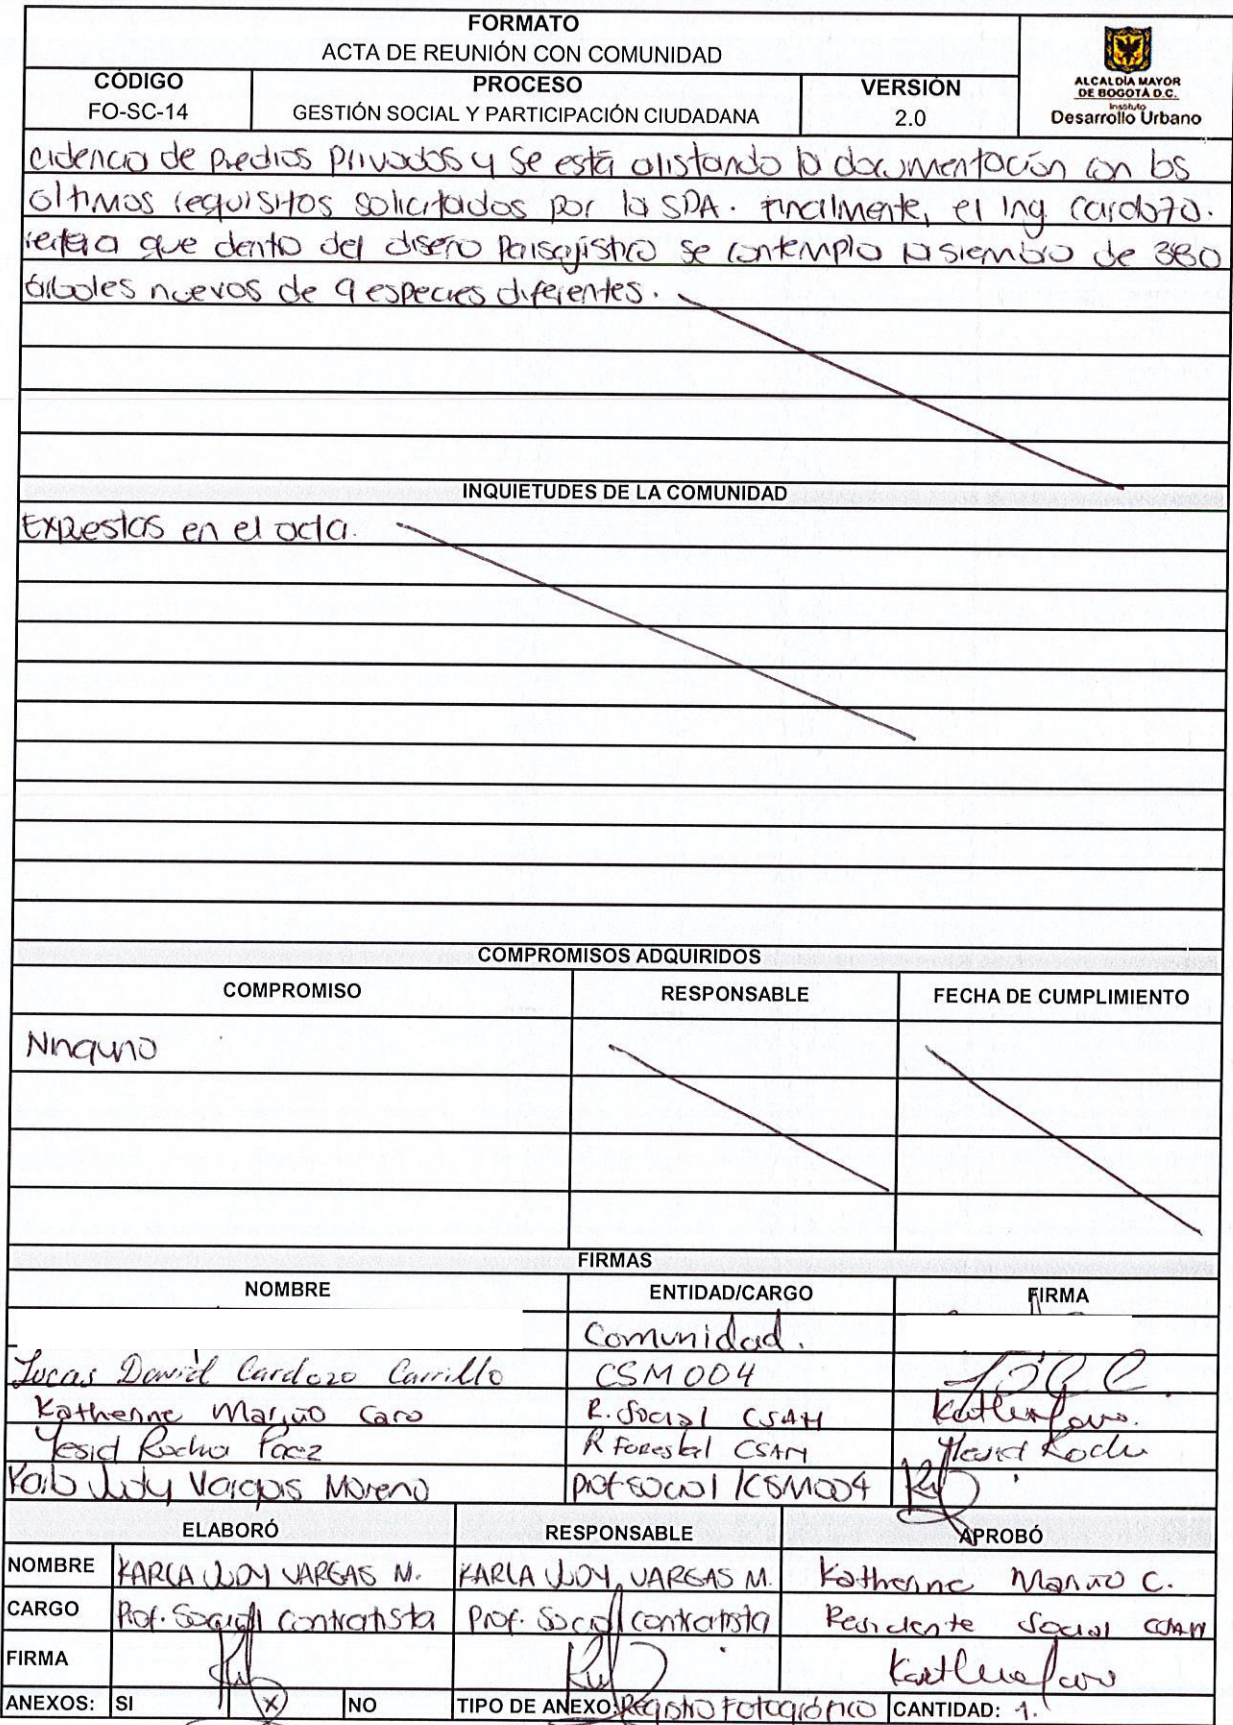 FORMATO
ACTA DE REUNIÓN CON COMUNIDAD
CÓDIGO
FO-SC-14
PROCESO
GESTIÓN SOCIAL Y PARTICIPACIÓN CIUDADANA
VERSIÓN
2.0
ALCALDÍA MAYOR
DE BOGOTÁ D.C.
Instituto
Desarrollo Urbano
cidencia de predios privados y se está alistando la documentación con los
últimos requisitos solicitados por la SDA. Finalmente, el Ing Cardozo.
reitera que dentro del diseño Paisajístico se contempla la siembra de 380
árboles nuevos de 9 especies diferentes.
INQUIETUDES DE LA COMUNIDAD
Expuestas en el acta.
COMPROMISOS ADQUIRIDOS
COMPROMISO RESPONSABLE FECHA DE CUMPLIMIENTO
Ninguno
FIRMAS
NOMBRE ENTIDAD/CARGO FIRMA
Comunidad.
Lucas David Cardozo Carrillo CSM004
Katherine Mariño Caro R. Social CSAM
Yesid Rocha Paez R Forestal CSAM Yesid Rocha
Karla Judy Vargas Moreno prof social /CSM004
ELABORÓ RESPONSABLE APROBÓ
NOMBRE KARLA JUDY VARGAS M. KARLA JUDY VARGAS M. Katherine Mariño C.
CARGO Prof. Social contratista Prof. Social contratista Residente Social CSAM
FIRMA
ANEXOS: SI X NO TIPO DE ANEXO: Registro Fotográfico CANTIDAD: 1.